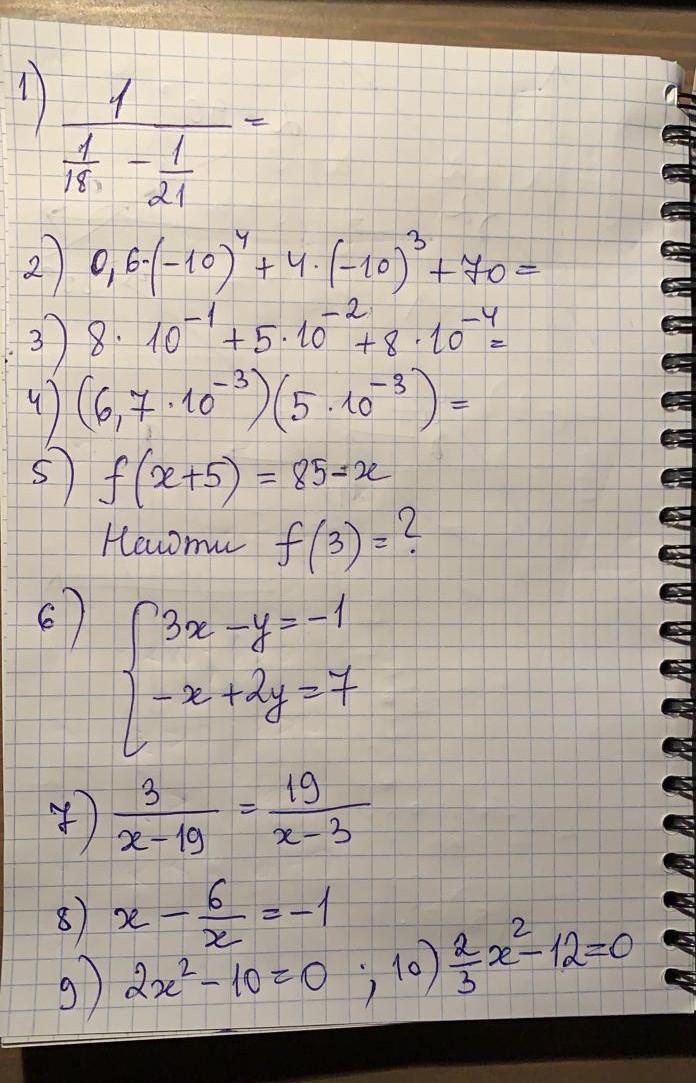 1) 1/(1/18 - 1/21) =
2) 0,6·(-10)⁴ + 4·(-10)³ + 70 =
3) 8·10⁻¹ + 5·10⁻² + 8·10⁻⁴ =
4) (6,7·10⁻³)(5·10⁻³) =
5) f(x+5) = 85-x
Найти f(3) = ?
6) { 3x - y = -1
-x + 2y = 7
7) 3/(x-19) = 19/(x-3)
8) x - 6/x = -1
9) 2x² - 10 = 0 ; 10) 2/3 x² - 12 = 0